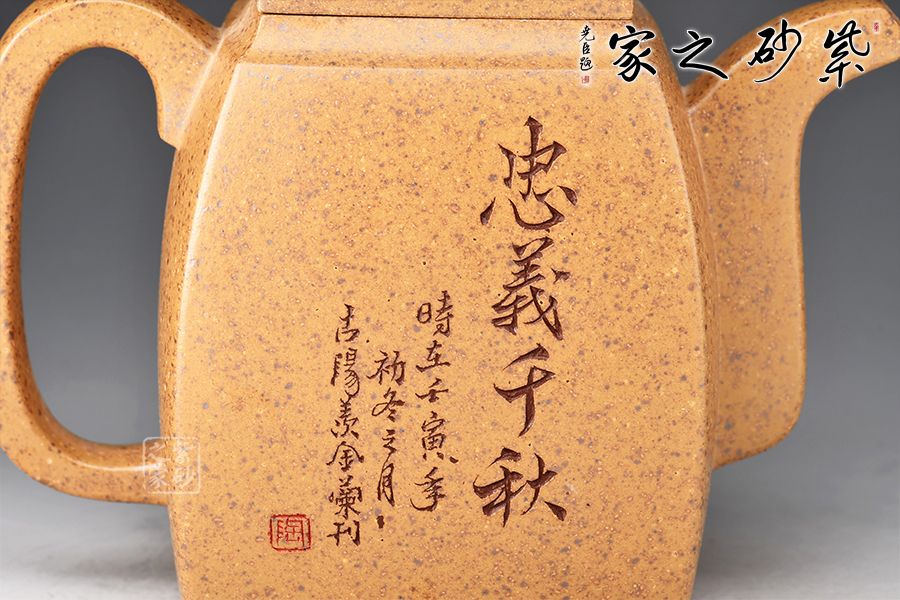 紫砂之家
尧臣题
忠義千秋
時在壬寅年
初冬之月
古陽羨金菊刊
陶
紫砂
之家